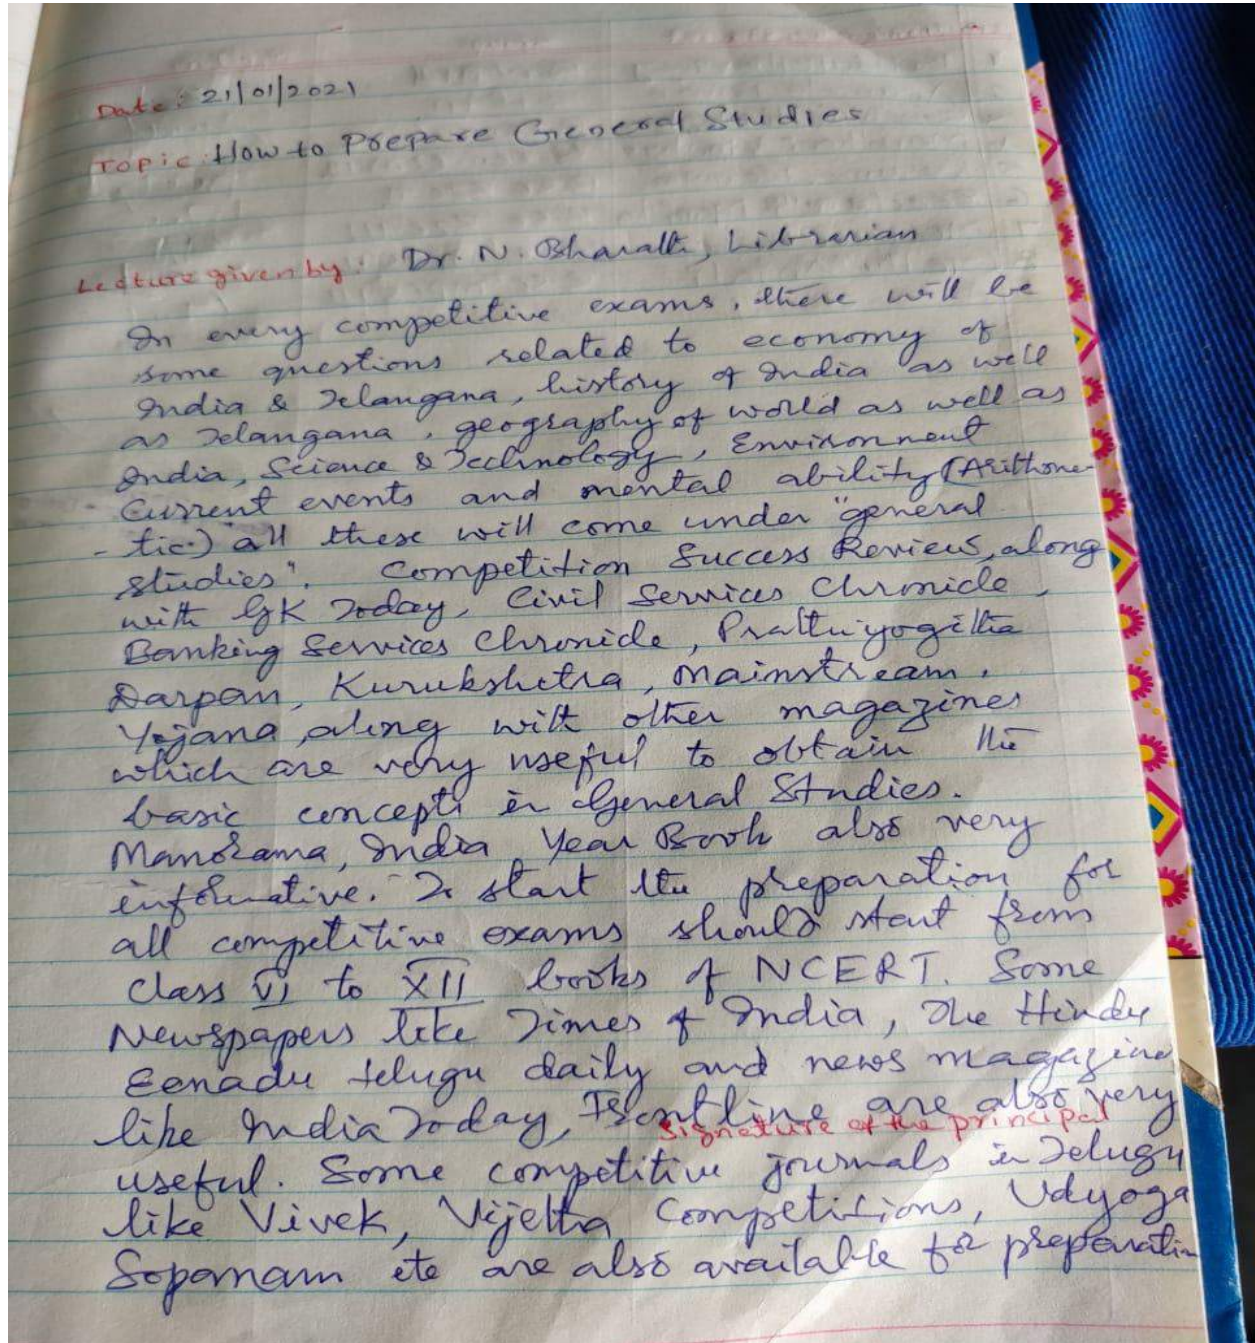 Date: 21/01/2021
Topic: How to Prepare General Studies
Lecture given by: Dr. N. Bharath, Librarian
In every competitive exams, there will be
some questions related to economy of
India & Telangana, history of India as well
as Telangana, geography of world as well as
India, Science & Technology, Environment
Current events and mental ability (Arithme-
-tic.) all these will come under "general
studies". Competition Success Review, along
with GK Today, Civil Services Chronicle,
Banking Services Chronicle, Prathiyogitha
Darpan, Kurukshetra, Mainstream,
Yojana, along with other magazines
which are very useful to obtain the
basic concepts in General Studies.
Manorama, India Year Book also very
informative. To start the preparation for
all competitive exams should start from
class VI to XII books of NCERT. Some
Newspapers like Times of India, The Hindu
Eenadu telugu daily and news magazine
like India Today, Frontline are also very
Signature of the principal
useful. Some competitive journals in Telugu
like Vivek, Vijetha Competitions, Udyoga
Sopanam etc are also available for preparation